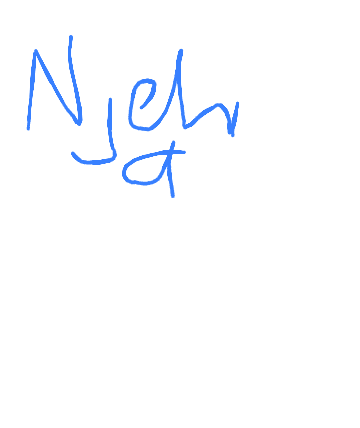 Njeh
a